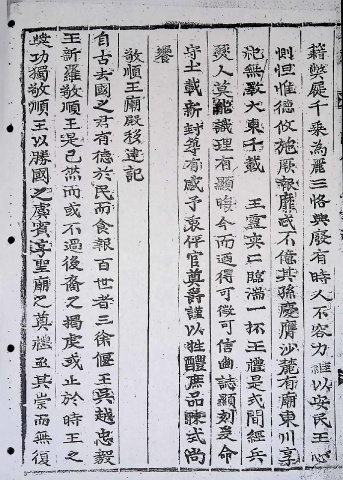 籍弊屣千乘為麗三恪興廢有時人不容力維以安民王心
則怛惟德攸施厥報靡忒不億其孫慶膺沙麓有廟東川享
祀無斁大東千載 王靈突仁臨滿一抔王禮是式間經兵
燹人莫能識理有顯晦今而適得可徵可信幽誌顯刻爰命
守土載新封筭有感予衷伻官奠爵謹以牲醴庶品陳式尚
饗
敬順王廟殿移建記
自古去國之君有德於民而食報百世者三徐偃王吳越忠毅
王新羅敬順王是已然而或不過後裔之揭虔或止於時王之
獎功獨敬順王以勝國之虞賓享聖廟之奠禮亟其崇而無復